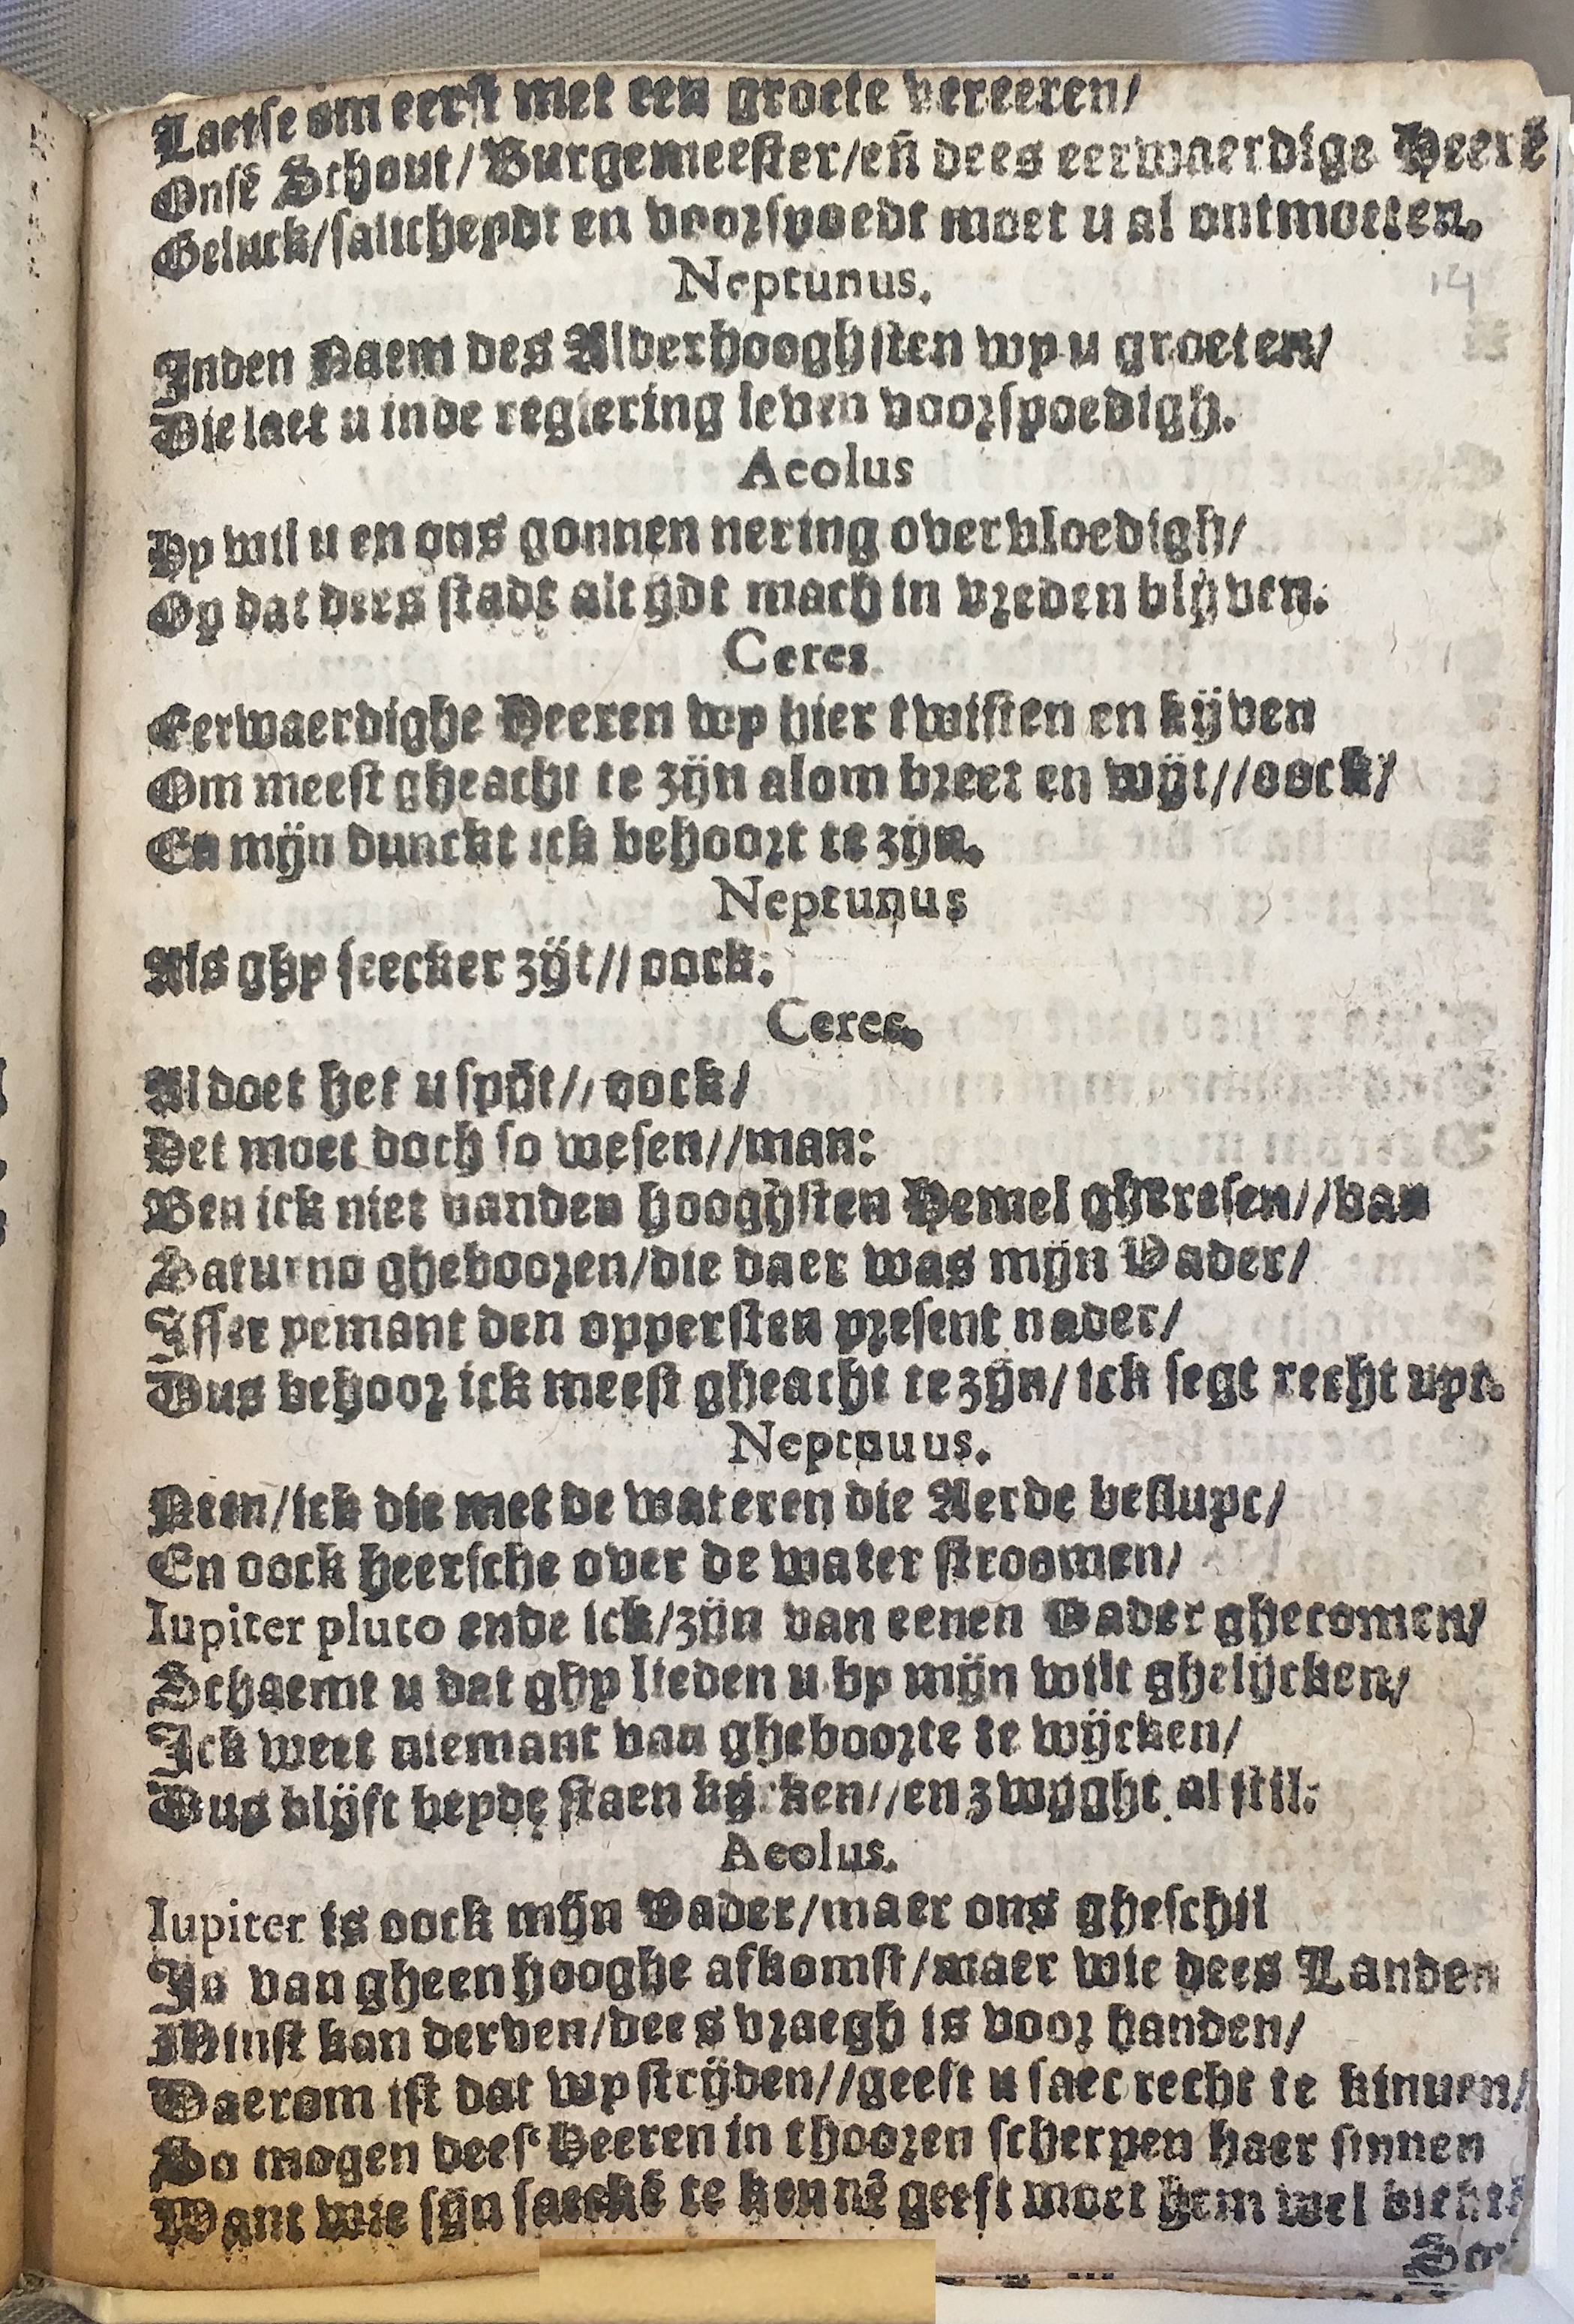 Laetse om eerst met een groete vereeren/
Onsē Schout/Burgemeester/eñ dees eerwaerdige Heerē
Geluck/salicheydt en voorspoedt moet u al ontmoeten.
Neptunus.
14
Inden Naem des Alderhooghsten wy u groeten/
Die laet u inde regiering leven voorspoedigh.
Aeolus
Hy wil u en ons gonnen nering overvloedigh/
Op dat dees stadt altydt mach in vreden blyven.
Ceres
Eerwaerdighe Heeren wy hier twisten en kijven
Om meest gheacht te zijn alom breet en wijt//oock/
En mijn dunckt ick behoort te zijn.
Neptunus
Als ghy seecker zijt//oock.
Ceres.
Al doet het u spijt//oock/
Het moet doch so wesen//man:
Ben ick niet vanden hooghsten Hemel gheresen//van
Saturno gheboozen/die daer was mijn Vader/
Isser yemant den oppersten present nader/
Dus behoor ick meest gheacht te zijn/ick segt recht uyt.
Neptuuus.
Neen/ick die met de wateren die Aerde besluyt/
En oock heersche over de water stroomen/
Iupiter pluto ende ick/zijn van eenen Vader ghecomen/
Schaemt u dat ghy lieden u by mijn wilt ghelijcken/
Ick weet niemant van gheboorte te wijcken/
Dus blijft beyde staen kijcken//en zwyght al stil:
Aeolus.
Iupiter is oock mijn Vader/maer ons gheschil
Is van gheen hooghe afkomst/maer wie dees Landen
Minst kan derven/dees vraegh is voor handen/
Daerom ist dat wy strijden//geeft u saec recht te kinnen/
So mogen dees Heeren in thooren scherpen haer sinnen
Want wie sijn saeckē te kennē geeft moet hem wel